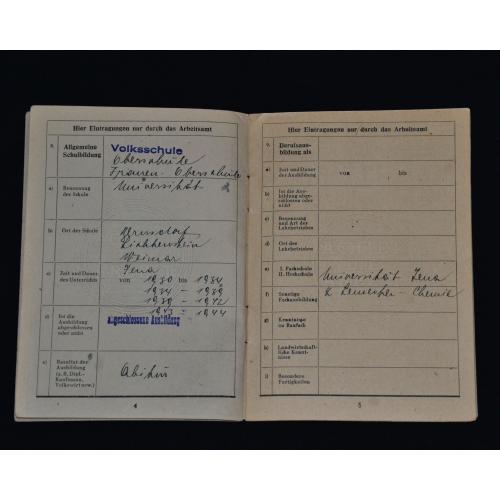 Hier Eintragungen nur durch das Arbeitsamt
8. Allgemeine
Schulbildung
Volksschule
Oberschule
Frauen-Oberschule
Universität
a) Benennung
der Schule
b) Ort der Schule
Lichtenstein
Weimar
Jena
c) Zeit und Dauer
des Unterrichts
von 1930 bis 1934
1934 - 1939
1939 - 1942
1943 - 1944
d) Ist die
Ausbildung
abgeschlossen
oder nicht
abgeschlossene Ausbildung
e) Resultat der
Ausbildung
(z. B. Dipl.-
Kaufmann,
Volkswirt usw.)
Abitur
4
Hier Eintragungen nur durch das Arbeitsamt
9. Berufsaus-
bildung als
a) Zeit und Dauer
der Ausbildung
von bis
b) Ist die Aus-
bildung abge-
schlossen oder
nicht
c) Benennung
und Art der
Lehrbetriebes
d) Ort des
Lehrbetriebes
e) I. Fachschule
II. Hochschule
Universität Jena
f) Sonstige
Fachausbildung
2 Semester - Chemie
g) Kenntnisse
im Baufach
h) Landwirtschaft-
liche Kennt-
nisse
i) Besondere
Fertigkeiten
5